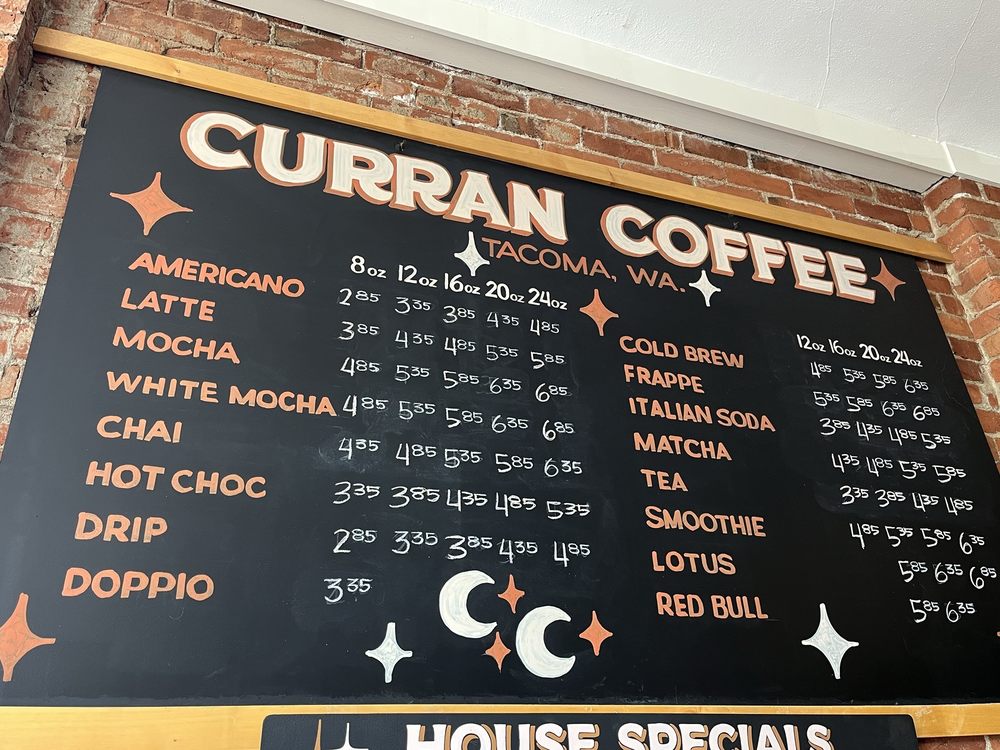 CURRAN COFFEE
TACOMA, WA.
8oz 12oz 16oz 20oz 24oz
AMERICANO 2⁸⁵ 3³⁵ 3⁸⁵ 4³⁵ 4⁸⁵
LATTE 3⁸⁵ 4³⁵ 4⁸⁵ 5³⁵ 5⁸⁵
MOCHA 4⁸⁵ 5³⁵ 5⁸⁵ 6³⁵ 6⁸⁵
WHITE MOCHA 4⁸⁵ 5³⁵ 5⁸⁵ 6³⁵ 6⁸⁵
CHAI 4³⁵ 4⁸⁵ 5³⁵ 5⁸⁵ 6³⁵
HOT CHOC 3³⁵ 3⁸⁵ 4³⁵ 4⁸⁵ 5³⁵
DRIP 2⁸⁵ 3³⁵ 3⁸⁵ 4³⁵ 4⁸⁵
DOPPIO 3³⁵
12oz 16oz 20oz 24oz
COLD BREW 4⁸⁵ 5³⁵ 5⁸⁵ 6³⁵
FRAPPE 5³⁵ 5⁸⁵ 6³⁵ 6⁸⁵
ITALIAN SODA 3⁸⁵ 4³⁵ 4⁸⁵ 5³⁵
MATCHA 4³⁵ 4⁸⁵ 5³⁵ 5⁸⁵
TEA 3³⁵ 3⁸⁵ 4³⁵ 4⁸⁵
SMOOTHIE 4⁸⁵ 5³⁵ 5⁸⁵ 6³⁵
LOTUS 5⁸⁵ 6³⁵ 6⁸⁵
RED BULL 5⁸⁵ 6³⁵
HOUSE SPECIALS